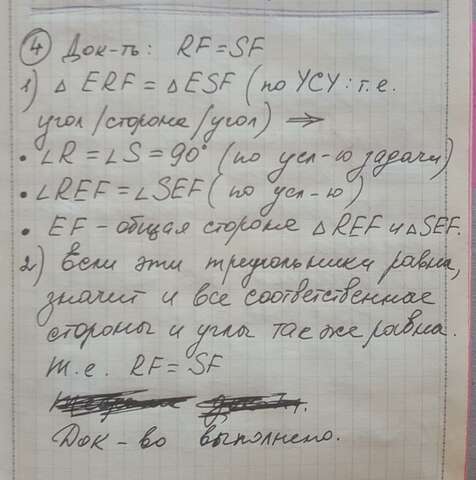 ④ Док-ть: RF = SF
1) △ ERF = △ ESF (по УСУ: т.е.
угол/сторона/угол) ⇒
• ∠R = ∠S = 90° (по усл-ю задачи)
• ∠REF = ∠SEF (по усл-ю)
• EF - общая сторона △ REF и △ SEF.
2) Если эти треугольники равны,
значит и все соответственные
стороны и углы также равны.
т.е. RF = SF
Док-во выполнено.